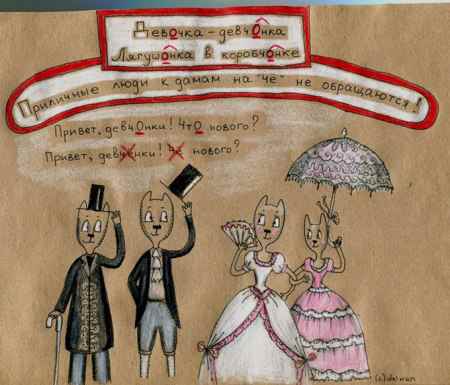 Девочка - девчОнка
Лягушонка в коробчонке
Приличные люди к дамам на "че" не обращаются!
Привет, девчОнки! ЧтО нового?
Привет, девчёнки! Чё нового?